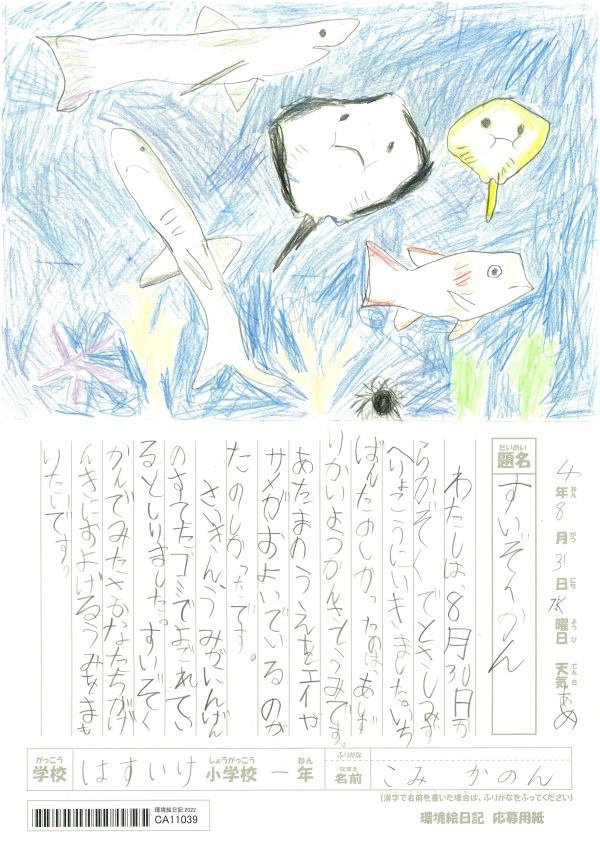 4年8月31日水曜日 天気あめ
ねん がつ にち ようび てんき
だいめい
題名 すいぞくかん
わたしは、8月30日か
らかぞくでとさしみず
へりょこうにいきました。いち
ばんたのしかったのは、あしず
りかいようかんさとうみです。
あたまのうえをエイや
サメがおよいでいるのが
たのしかったです。
さいきん、うみがにんげん
のすてたゴミでよごれてい
るとしりました。すいぞく
かんでみたさかなたちがげ
んきにおよげるうみをまも
りたいです。
がっこう しょうがっこう ねん ふりがな
学校 はすいけ 小学校 一年 名前 こみ かのん
なまえ
(漢字で名前を書いた場合は、ふりがなをふってください)
環境絵日記 2022
CA11039
環境絵日記 応募用紙